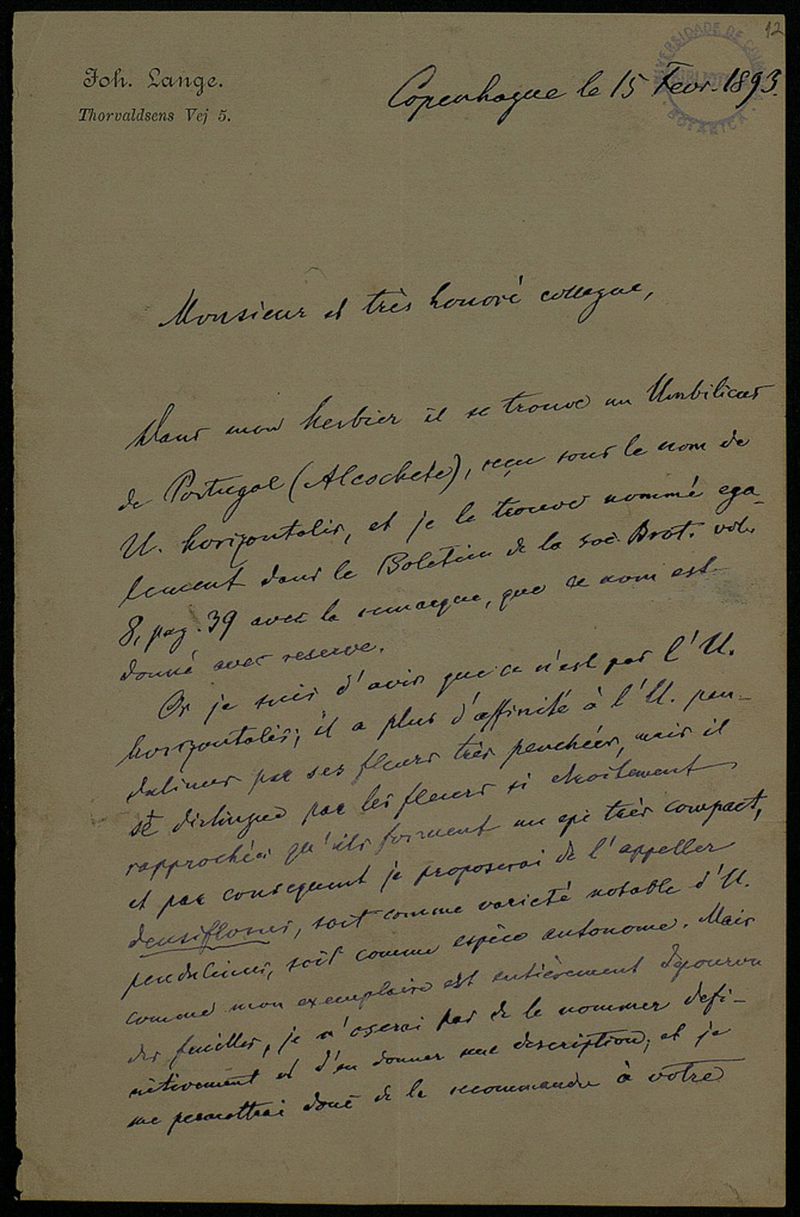 12
UNIVERSIDADE DE COIMBRA
BIBLIOTECA
BOTANICA
Joh. Lange.
Thorvaldsens Vej 5.
Copenhague le 15 Fevr. 1893.
Monsieur et très honoré collegue,
Dans mon herbier il se trouve un Umbilicus
de Portugal (Alcochete), reçu sous le nom de
U. horizontalis, et je le trouve nommé ega-
lement dans le Boletim de la soc. Brot. vol.
8, pag. 39 avec la remarque, que ce nom est
donné avec reserve.
Or je suis d'avis que ce n'est pas l'U.
horizontalis; il a plus d'affinité à l'U. pen-
dulinus par ses fleurs très penchées, mais il
se distingue par les fleurs si etroitement
rapprochées qu'ils forment un epi très compact,
et par consequent je proposerai de l'appeller
densiflorus, soit comme varieté notable d'U.
pendulinus, soit comme espèce autonome. Mais
comme mon exemplaire est entièrement depourvu
des feuilles, je n'oserai pas de le nommer defi-
nitivement et d'en donner une description; et je
me permettrai donc de le recommander à votre